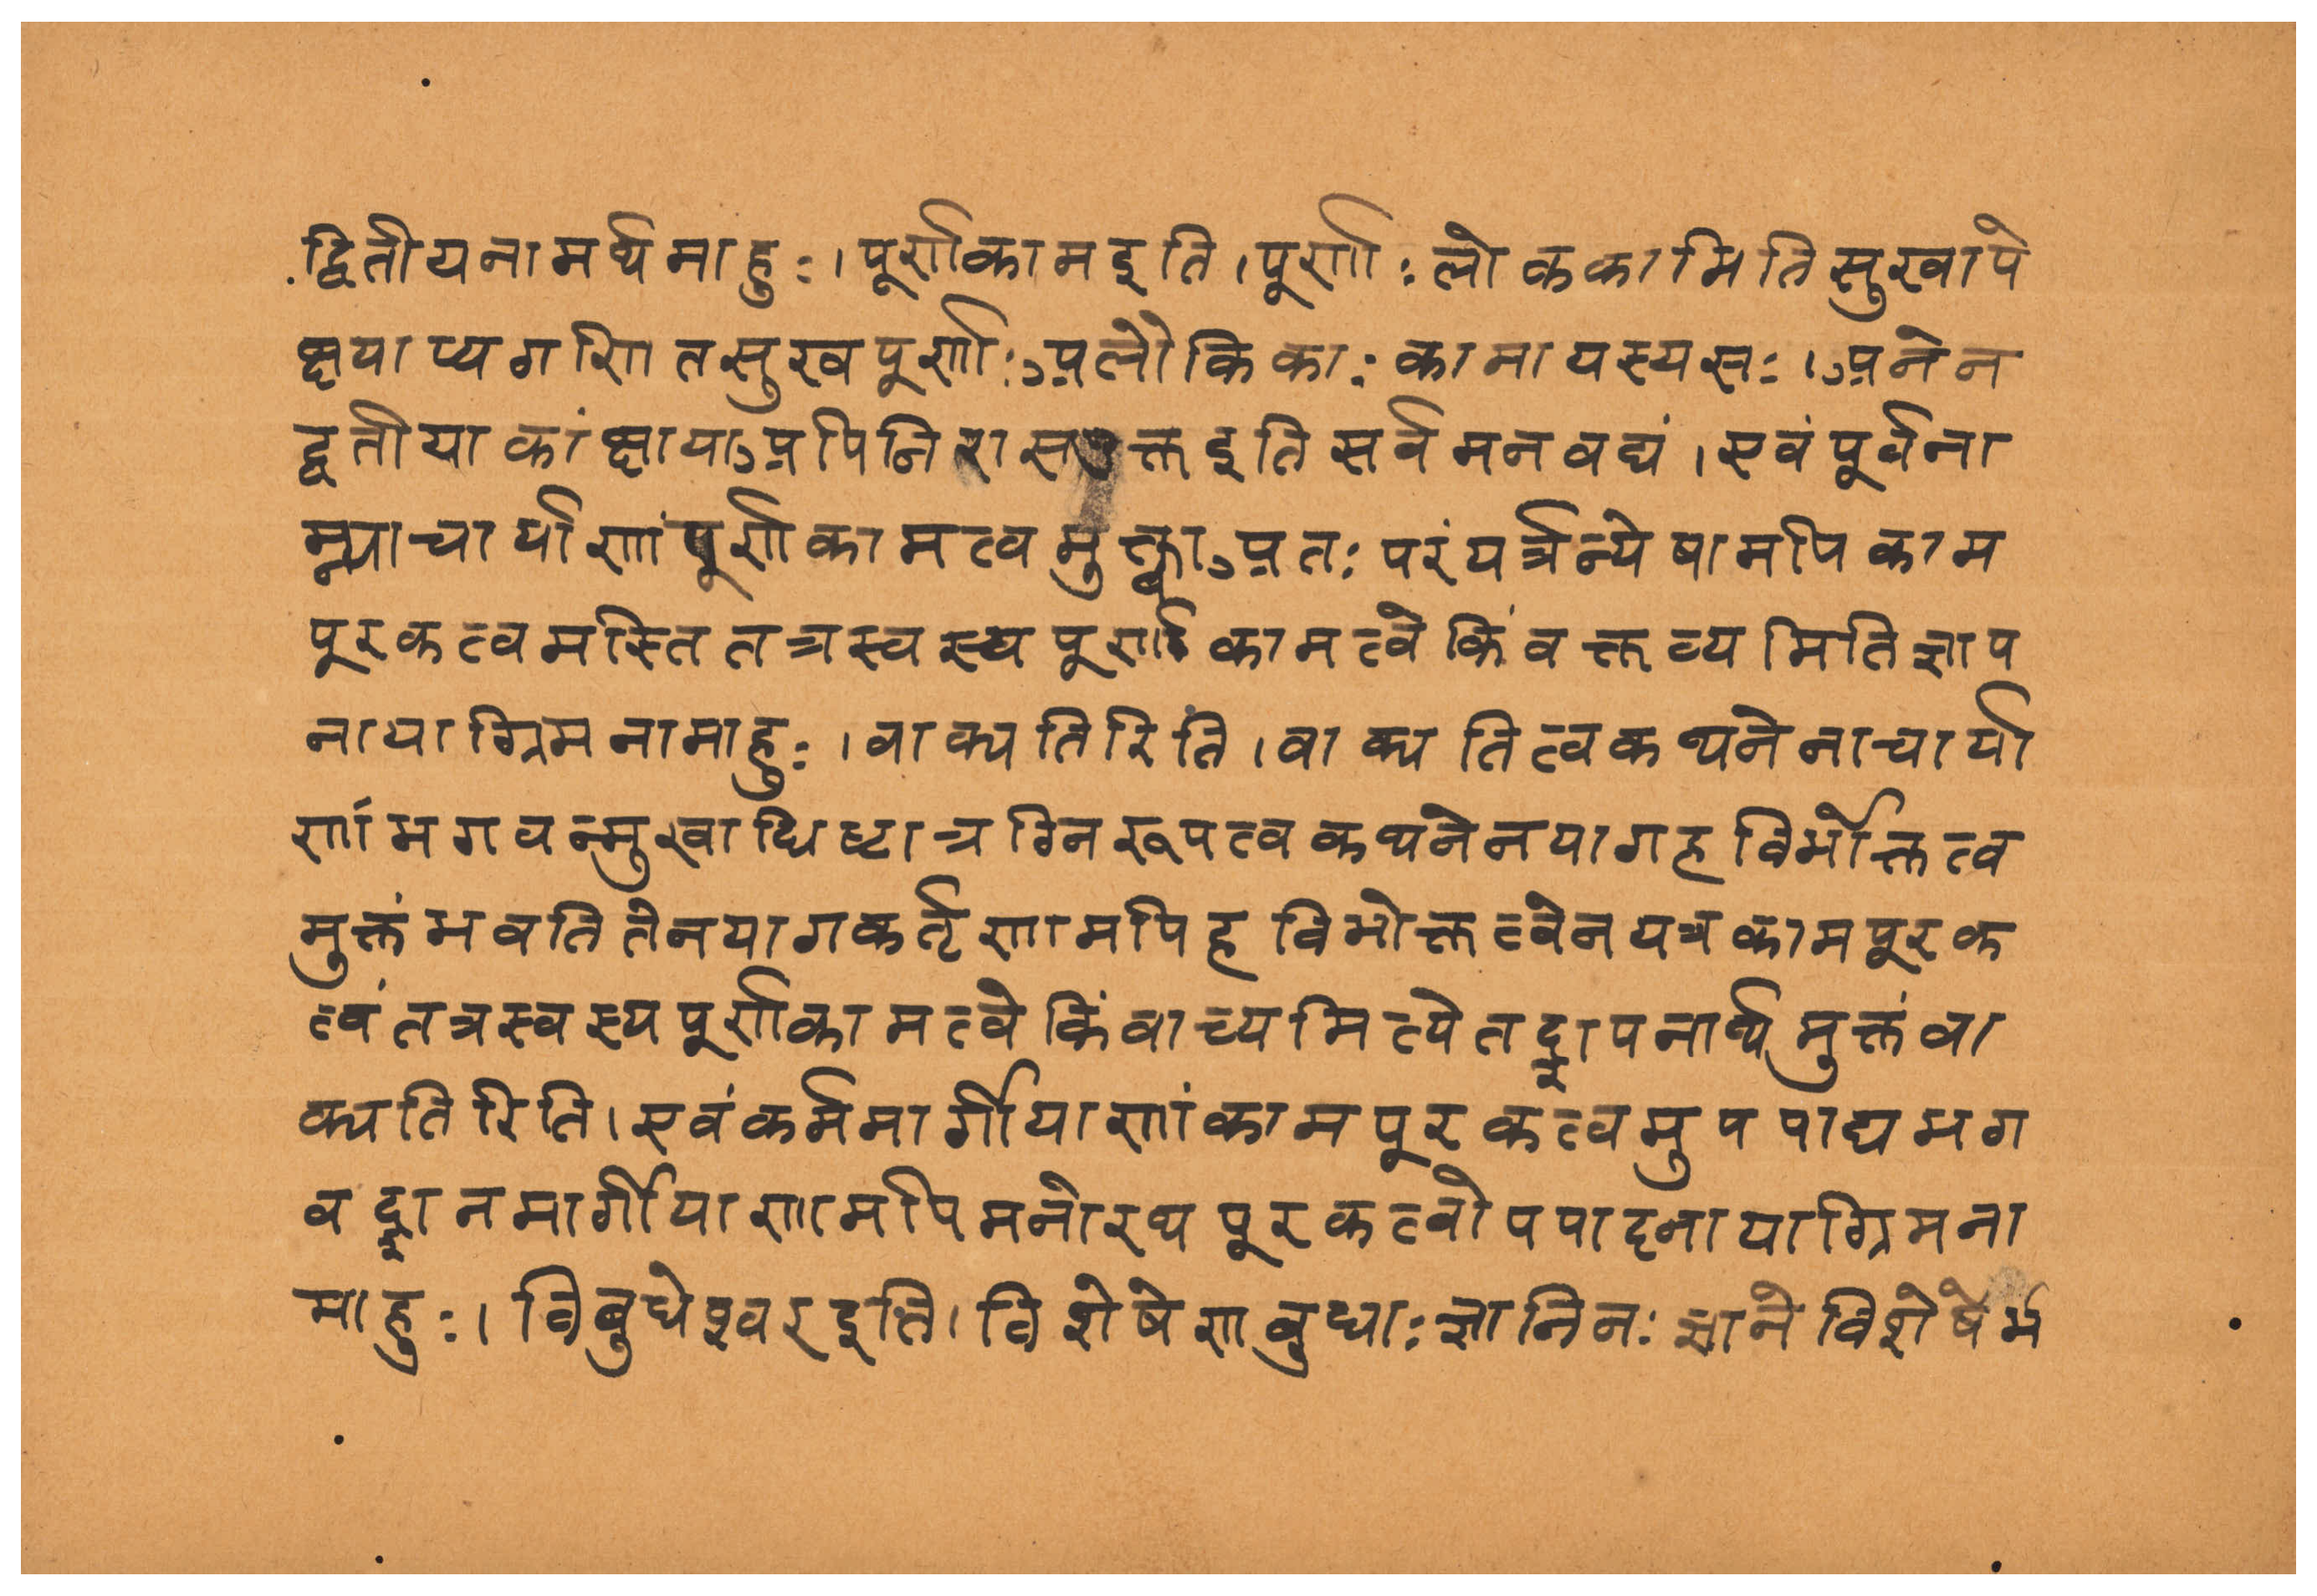 द्वितीयनामर्थमाहुः।पूर्णकामइति।पूर्णाःलोककामितिसुखापे
क्षयाप्यगणितसुखपूर्णाःअलौकिकाःकामायस्यसः।अनेन
द्वतीयाकांक्षायाअपिनिरासउक्तइतिसर्वमनवद्यं।एवंपूर्वना
म्न्याचार्याणांपूर्णकामत्वमुक्त्वाअतःपरंयर्त्रन्येषामपिकाम
पूरकत्वमस्तितत्रस्वस्यपूर्णकामत्वेकिंवक्तव्यमितिज्ञाप
नायाग्रिमनामाहुः।वाक्पतिरिति।वाक्पतित्वकथनेनाचार्या
णांभगवन्मुखाधिष्टात्रग्निरूपत्वकथनेनयागहविर्भोक्तत्व
मुक्तंभवतितेनयागकर्तृणामपिहविभोक्तत्वेनयत्रकामपूरक
त्वंतत्रस्वस्यपूर्णकामत्वेकिंवाच्यमित्येतद्ज्ञापनार्थमुक्तंवा
क्पतिरिति।एवंकर्ममार्गीयाणांकामपूरकत्वमुपपाद्यभग
वद्ज्ञानमार्गीयाणामपिमनोरथपूरकत्वोपपादनायाग्रिमना
माहुः।विबुधेश्वरइति।विशेषेणबुधाःज्ञानिनःज्ञानेविशेषेर्भ